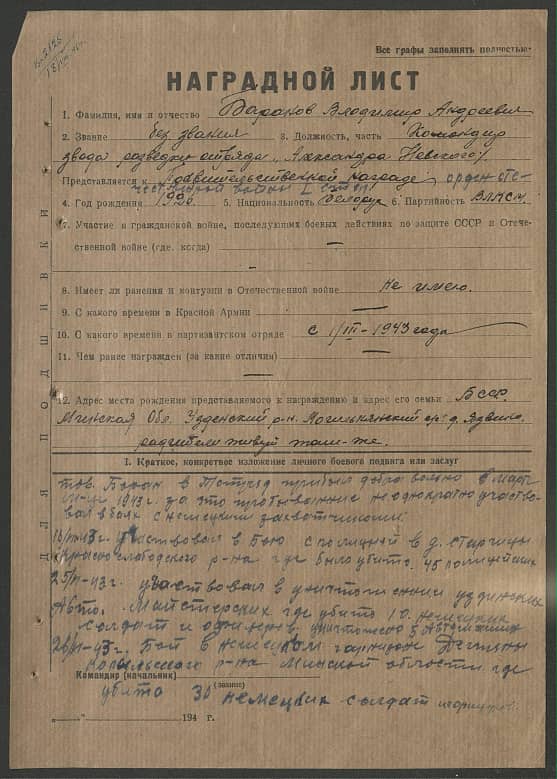 Все графы заполнять полностью
НАГРАДНОЙ ЛИСТ
1. Фамилия, имя и отчество Владимир Андреевич
2. Звание без звания 3. Должность, часть Командир
звода розведки отряда „Александра Невского"
Представляется к правительственной награде орден Оте-
чественной войны I степ
4. Год рождения 5. Национальность Белорус 6. Партийность ВЛКСМ
7. Участие в гражданской войне, последующих боевых действиях по защите СССР и Отече-
ственной войне (где, когда) —
8. Имеет ли ранения и контузии в Отечественной войне Не имею.
9. С какого времени в Красной Армии —
10. С какого времени в партизанском отряде с 1/III-1943 года
11. Чем ранее награжден (за какие отличия) —
12. Адрес места рождения представляемого к награждению и адрес его семьи БССР
Минская Обл. Узденский р-н. с/с д. Ядвино
родители живут там-же.
I. Краткое, конкретное изложение личного боевого подвига или заслуг
тов. в прибыл в март
м-це 1943 г. за это неоднократно участво-
вал в боях с немецкими захватчиками
участвовал в бою с полицией в д. Старицы
Краснослободского р-на где было убито 45 полицейских
участвовал в уничтожении узденских
Авто. Мастерских где убито 10 немецких
солдат и уничтожено 5
Бой в немецком гарнизоне
Копыльского р-на Минской области где
Командир (начальник)
(звание)
убито 30 немецких солдат
„ " 194 г.
ДЛЯ ПОДШИВКИ